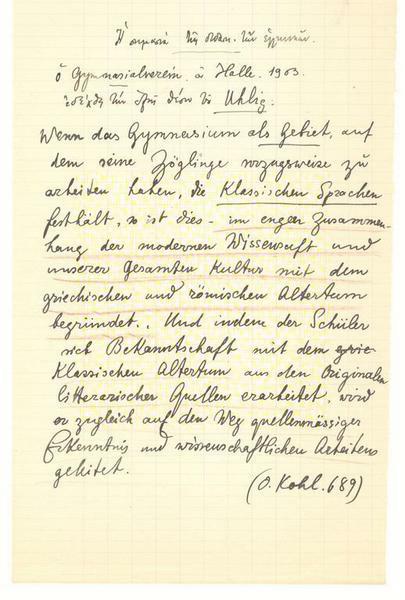 Ἡ σημασία τῆς σπουδ. τῶν ἑλληνικῶν.
ὁ Gymnasialverein, à Halle. 1903.
τὴν θέσιν τοῦ Uhlig.
Wenn das Gymnasium als Gebiet, auf
dem seine Zöglinge vorzugsweise zu
arbeiten haben, die Klassischen Sprachen
festhält, so ist dies - im engen Zusammen-
hang der modernen Wissensaft und
unserer Gesamten Kultur mit dem
griechischen und römischen Altertum
begründet.. Und indem der Schüler
sich Bekanntschaft mit dem grie
Klassischen Altertum aus den Originalen
litterarischer Quellen erarbeitet, wird
er zugleich auf den Weg quellenmässiger
Erkenntnis und wissenschaftlichen Arbeitens
geleitet.
(O. Kohl. 689)